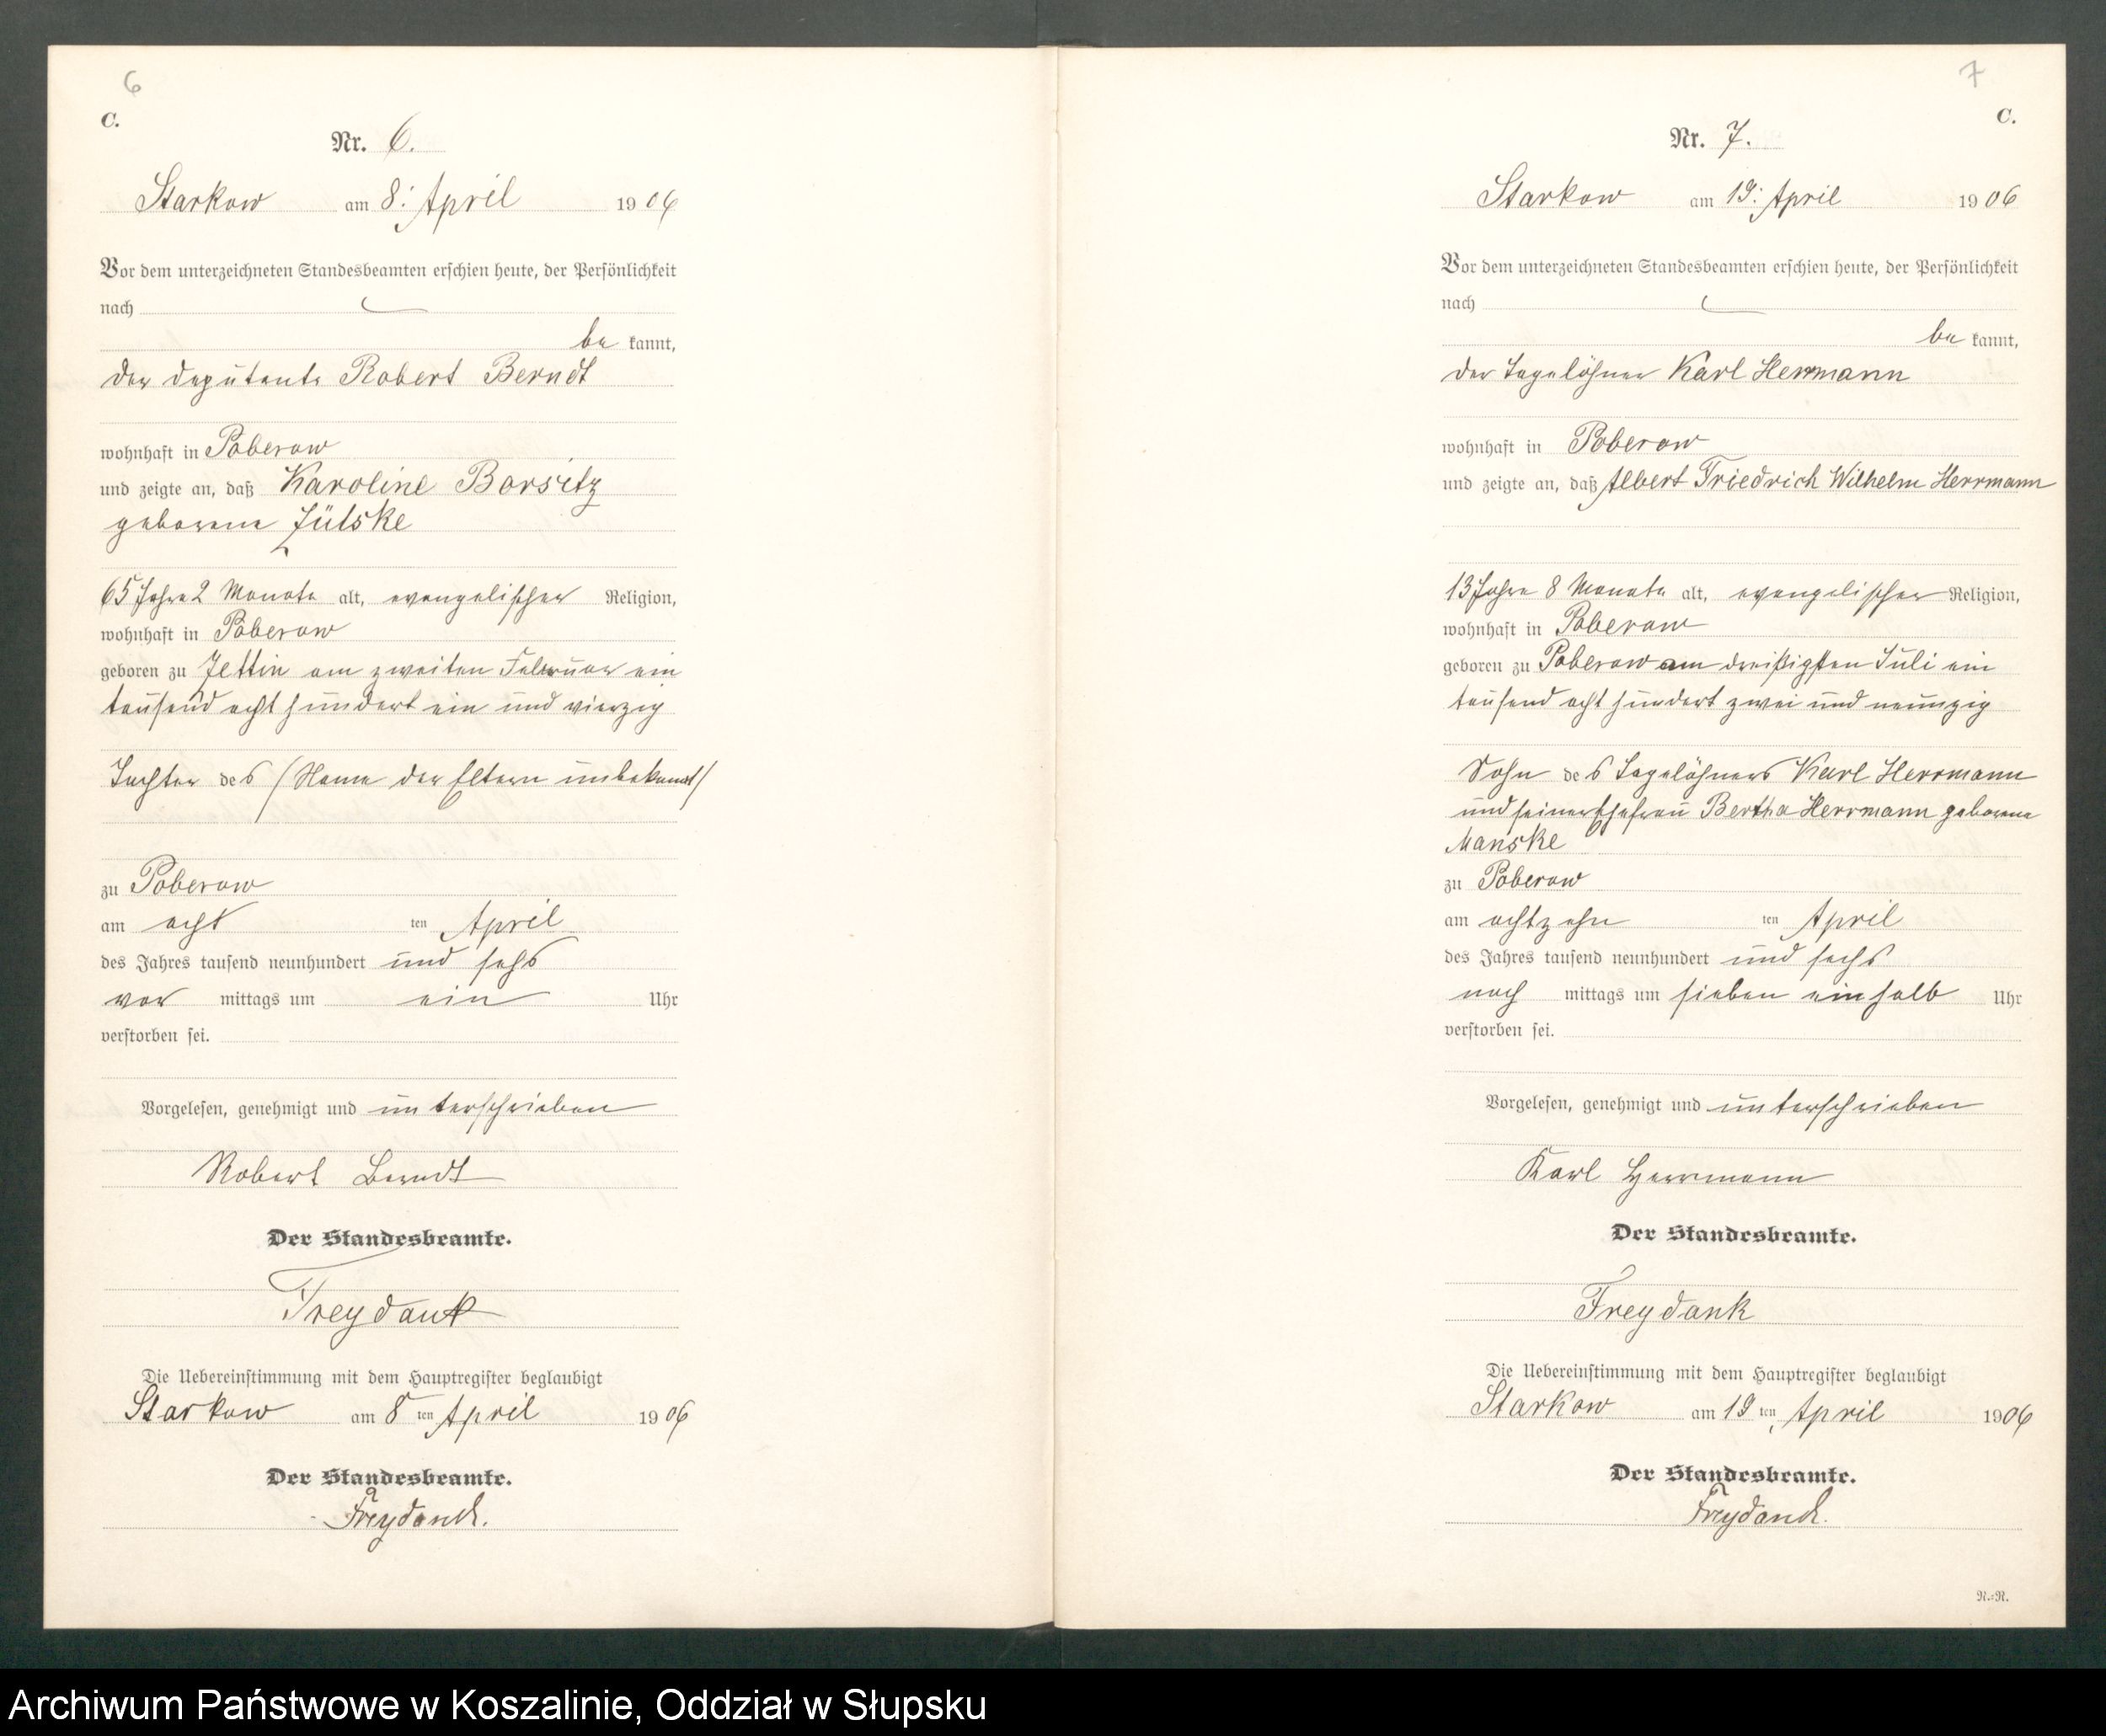 6
C.
Nr. 6.
Starkow am 8. April 1906
Vor dem unterzeichneten Standesbeamten erschien heute, der Persönlichkeit
nach
be kannt,
der Deputante Robert Berndt
wohnhaft in Poberow
und zeigte an, daß Karoline Borsitz
geborene Zülske
65 Jahre 2 Monate alt, evangelischer Religion,
wohnhaft in Poberow
geboren zu Jettin am zweiten Februar ein
tausend acht hundert ein und vierzig
Tochter des (Name der Eltern unbekannt)
zu Poberow
am acht ten April
des Jahres tausend neunhundert und sechs
vor mittags um ein Uhr
verstorben sei.
Vorgelesen, genehmigt und unterschrieben
Robert Berndt
Der Standesbeamte.
Freydank
Die Uebereinstimmung mit dem Hauptregister beglaubigt
Starkow am 8 ten April 1906
Der Standesbeamte.
Freydank.
7
C.
Nr. 7.
Starkow am 19. April 1906
Vor dem unterzeichneten Standesbeamten erschien heute, der Persönlichkeit
nach
be kannt,
der Tagelöhner Karl Herrmann
wohnhaft in Poberow
und zeigte an, daß Albert Friedrich Wilhelm Herrmann
13 Jahre 8 Monate alt, evangelischer Religion,
wohnhaft in Poberow
geboren zu Poberow am dreißigsten Juli ein
tausend acht hundert zwei und neunzig
Sohn des Tagelöhners Karl Herrmann
und seiner Ehefrau Bertha Herrmann geborene
Manske
zu Poberow
am achtzehn ten April
des Jahres tausend neunhundert und sechs
nach mittags um sieben einhalb Uhr
verstorben sei.
Vorgelesen, genehmigt und unterschrieben
Karl Herrmann
Der Standesbeamte.
Freydank
Die Uebereinstimmung mit dem Hauptregister beglaubigt
Starkow am 19 ten April 1906
Der Standesbeamte.
Freydank.
N.=N.
Archiwum Państwowe w Koszalinie, Oddział w Słupsku